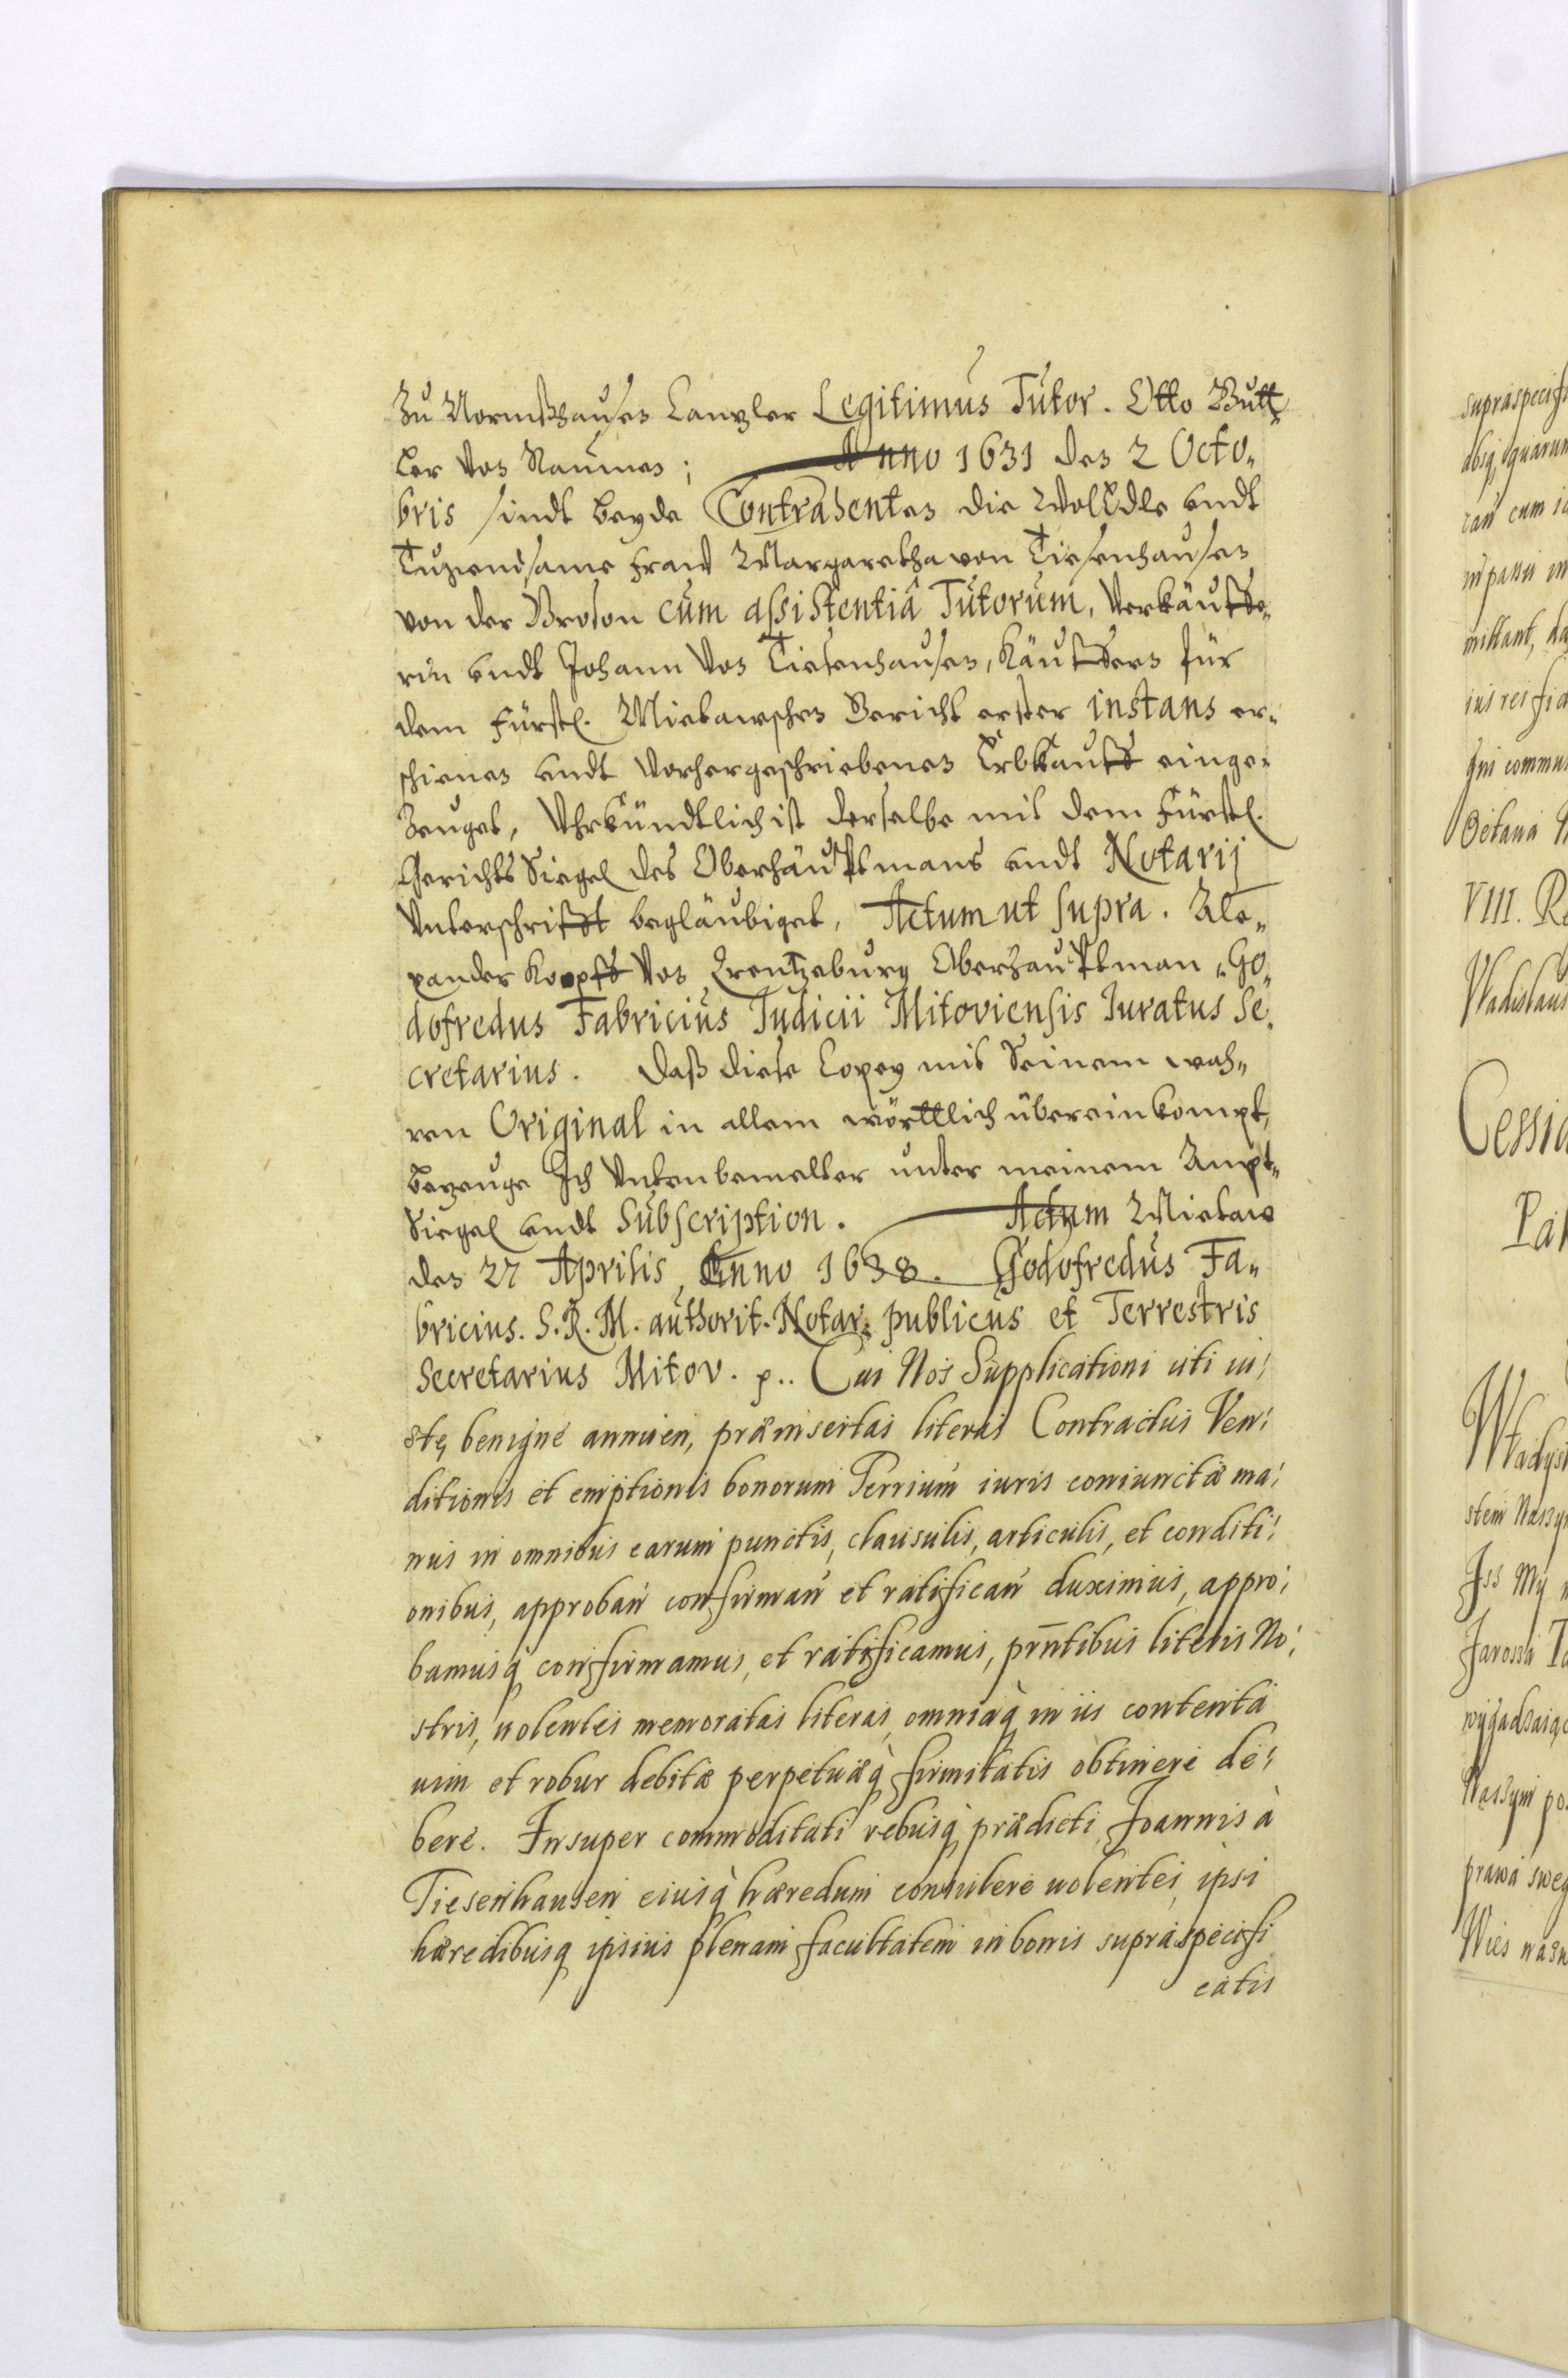 Zu Wormbshausen Canzler Legitimus Tutor. Otto Butt„
ler von Naumes; Anno 1631 den 2 Octo„
bris sindt beyde Contrahenten die Woledle undt
Tugendsame Fraw Margaretha von Tiesenhausen
von der Broton cum assistentiâ Tutorum, Verkäuffe„
rin undt Johann von Tiesenhausen, Käuffern für
dem Fürstl. Mietawschen Gericht erster instans er„
schienen undt vorhergeschriebenen Erbkauff einge„
zeuget, Uhrkündtlich ist derselbe mit dem Fürstl.
Gerichts Siegel des Oberhäuptmans undt Notarij
Unterschrifft begläubiget, Actum ut supra. Ale„
xander Korpff von Creutzeburg Oberhauptman, Go„
dofredus Fabricius Judicii Mitoviensis Iuratus Se„
cretarius. Daß diese Copey mit Seinem wah„
ren Original in allem wörttlich übereinkompt,
bezeuge Ich Untenbemelter unter meinem Ampt„
Siegel undt Subscription. Actum Mietaw
den 27 Aprilis Anno 1638. Godofredus Fa„
bricius. S. R. M. authorit. Notar: publicus et Terrestris
Secretarius Mitov. p.. Cui Nos Supplicationi uti iu:
stę benigne annuen, præinsertas literas Contractus Ven:
ditionis et emptionis bonorum Perrium iuris coniunctæ ma:
nus in omnibus earum punctis, clausulis, articulis, et conditi:
onibus, approban confirman et ratifican duximus, appro:
bamusq confirmamus, et ratificamus, prntibus literis No:
stris, uolentes memoratas literas, omniaq in iis contenta
uim et robur debitæ perpetuæq firmitatis obtinere de:
bere. Insuper commoditati rebusq prædicti Joannis à
Tiesenhausen eiusq hæredum consulere uolentes, ipsi
hæredibusq ipsius plenam facultatem in bonis supraspecifi
catis
supraspecifi
absq
Octava
VIII.
Vladislaus
Cessio
Iss My
Naszym
prawa sweg